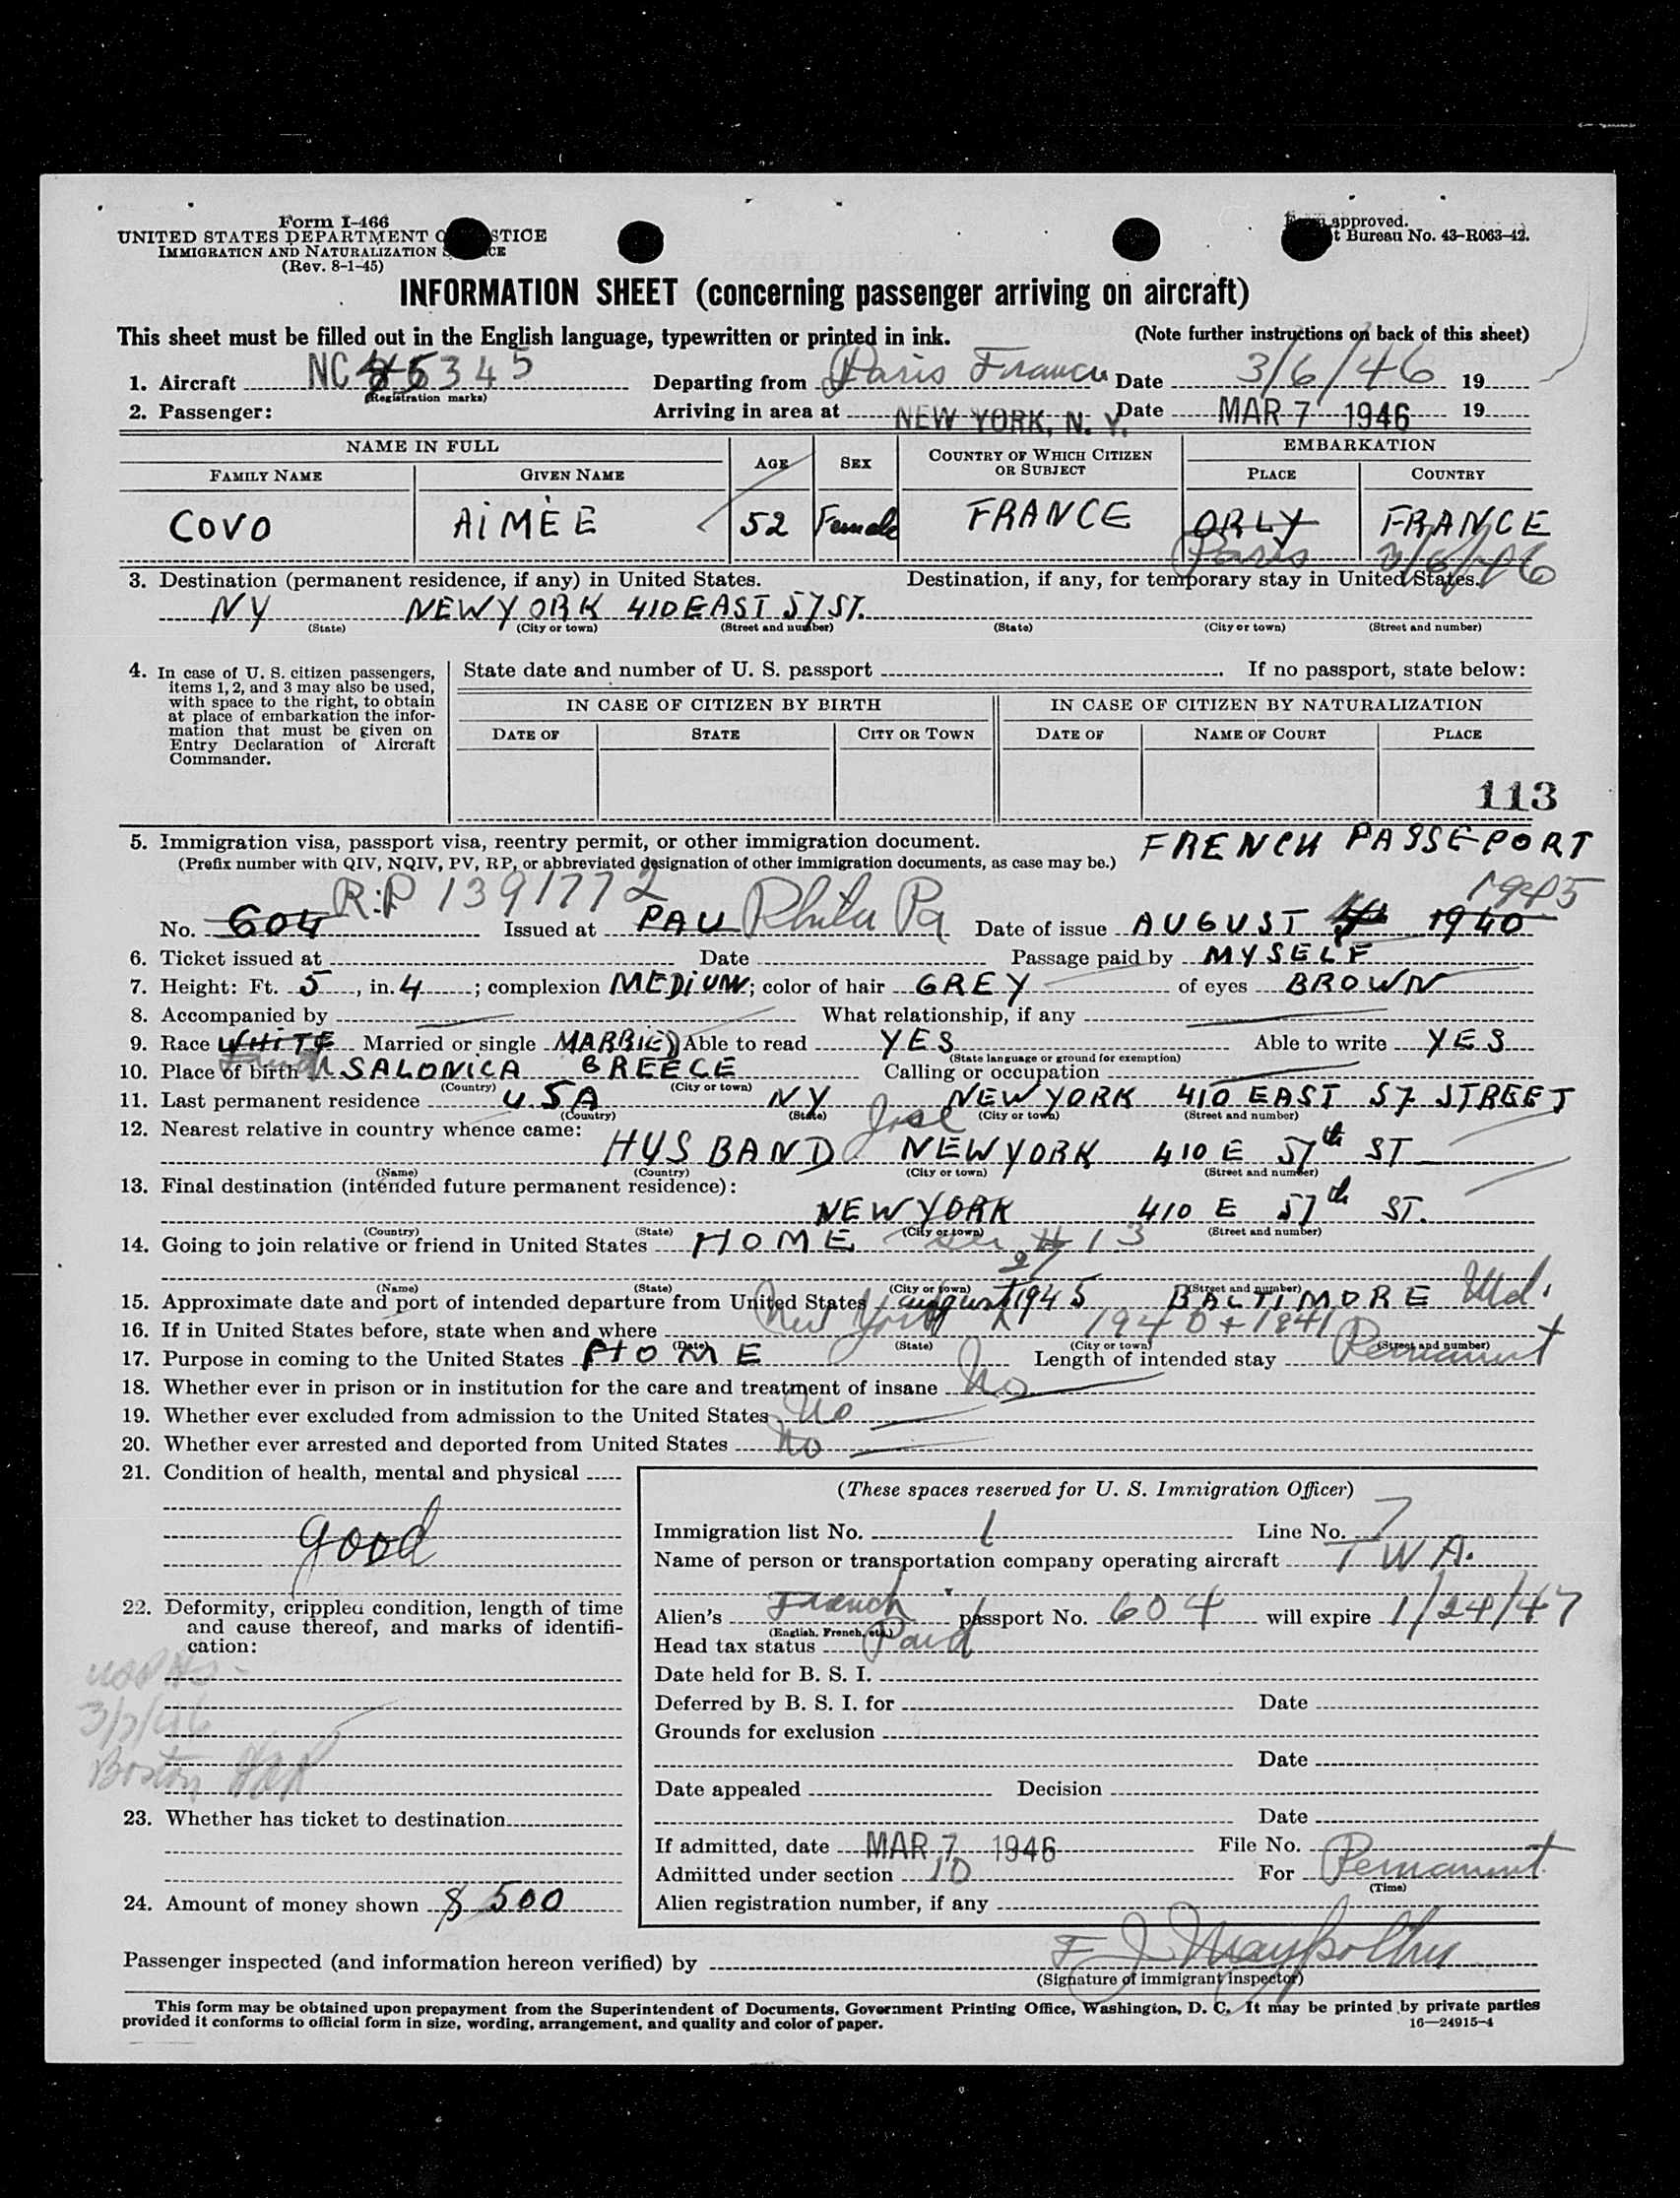 Form I-466
UNITED STATES DEPARTMENT O STICE
IMMIGRATION AND NATURALIZATION S CE
(Rev. 8-1-45)
approved.
t Bureau No. 43-R063-42.
INFORMATION SHEET (concerning passenger arriving on aircraft)
This sheet must be filled out in the English language, typewritten or printed in ink. (Note further instructions on back of this sheet)
1. Aircraft NC 345 Departing from Paris France Date 3/6/46 19
(Registration marks)
2. Passenger: Arriving in area at NEW YORK, N. Y. Date MAR 7 1946 19
NAME IN FULL AGE SEX COUNTRY OF WHICH CITIZEN OR SUBJECT EMBARKATION
FAMILY NAME GIVEN NAME PLACE COUNTRY
COVO AIMÈE 52 Female FRANCE ORLY FRANCE
Paris 3/6/46
3. Destination (permanent residence, if any) in United States. Destination, if any, for temporary stay in United States.
NY NEW YORK 410 EAST 57 ST.
(State) (City or town) (Street and number) (State) (City or town) (Street and number)
4. In case of U. S. citizen passengers, items 1, 2, and 3 may also be used, with space to the right, to obtain at place of embarkation the information that must be given on Entry Declaration of Aircraft Commander.
State date and number of U. S. passport If no passport, state below:
IN CASE OF CITIZEN BY BIRTH IN CASE OF CITIZEN BY NATURALIZATION
DATE OF STATE CITY OR TOWN DATE OF NAME OF COURT PLACE
113
5. Immigration visa, passport visa, reentry permit, or other immigration document. FRENCH PASSEPORT
(Prefix number with QIV, NQIV, PV, RP, or abbreviated designation of other immigration documents, as case may be.)
R.P 1391772 1945
No. 604 Issued at PAU Phila Pa Date of issue AUGUST 1940
6. Ticket issued at Date Passage paid by MYSELF
7. Height: Ft. 5, in. 4; complexion MEDIUM; color of hair GREY of eyes BROWN
8. Accompanied by What relationship, if any
9. Race WHITE Married or single MARRIED Able to read YES Able to write YES
(State language or ground for exemption)
10. Place of birth SALONICA GREECE Calling or occupation
(Country) (City or town)
11. Last permanent residence U.S A NY NEW YORK 410 EAST 57 STREET
(Country) (State) (City or town) (Street and number)
12. Nearest relative in country whence came:
HUSBAND NEW YORK 410 E 57th ST
(Name) (Country) (City or town) (Street and number)
13. Final destination (intended future permanent residence):
NEW YORK 410 E 57th ST.
(Country) (State) (City or town) (Street and number)
14. Going to join relative or friend in United States HOME see # 13
27
(Name) (State) (City or town) (Street and number)
15. Approximate date and port of intended departure from United States august 1945 BALTIMORE Md.
16. If in United States before, state when and where New York 1940 + 1941
(Date) (State) (City or town) (Street and number)
17. Purpose in coming to the United States HOME Length of intended stay Permanent
18. Whether ever in prison or in institution for the care and treatment of insane No
19. Whether ever excluded from admission to the United States No
20. Whether ever arrested and deported from United States No
21. Condition of health, mental and physical
good
22. Deformity, crippled condition, length of time and cause thereof, and marks of identification:
3/7/46
Boston
23. Whether has ticket to destination
24. Amount of money shown $ 500
(These spaces reserved for U. S. Immigration Officer)
Immigration list No. 1 Line No. 7
Name of person or transportation company operating aircraft T W A.
Alien's French passport No. 604 will expire 1/24/47
(English, French, etc.)
Head tax status Paid
Date held for B. S. I.
Deferred by B. S. I. for Date
Grounds for exclusion
Date
Date appealed Decision
Date
If admitted, date MAR 7 1946 File No.
Admitted under section 10 For Permanent
(Time)
Alien registration number, if any
Passenger inspected (and information hereon verified) by F J
(Signature of immigrant inspector)
This form may be obtained upon prepayment from the Superintendent of Documents, Government Printing Office, Washington, D. C. It may be printed by private parties
provided it conforms to official form in size, wording, arrangement, and quality and color of paper. 16—24915-4